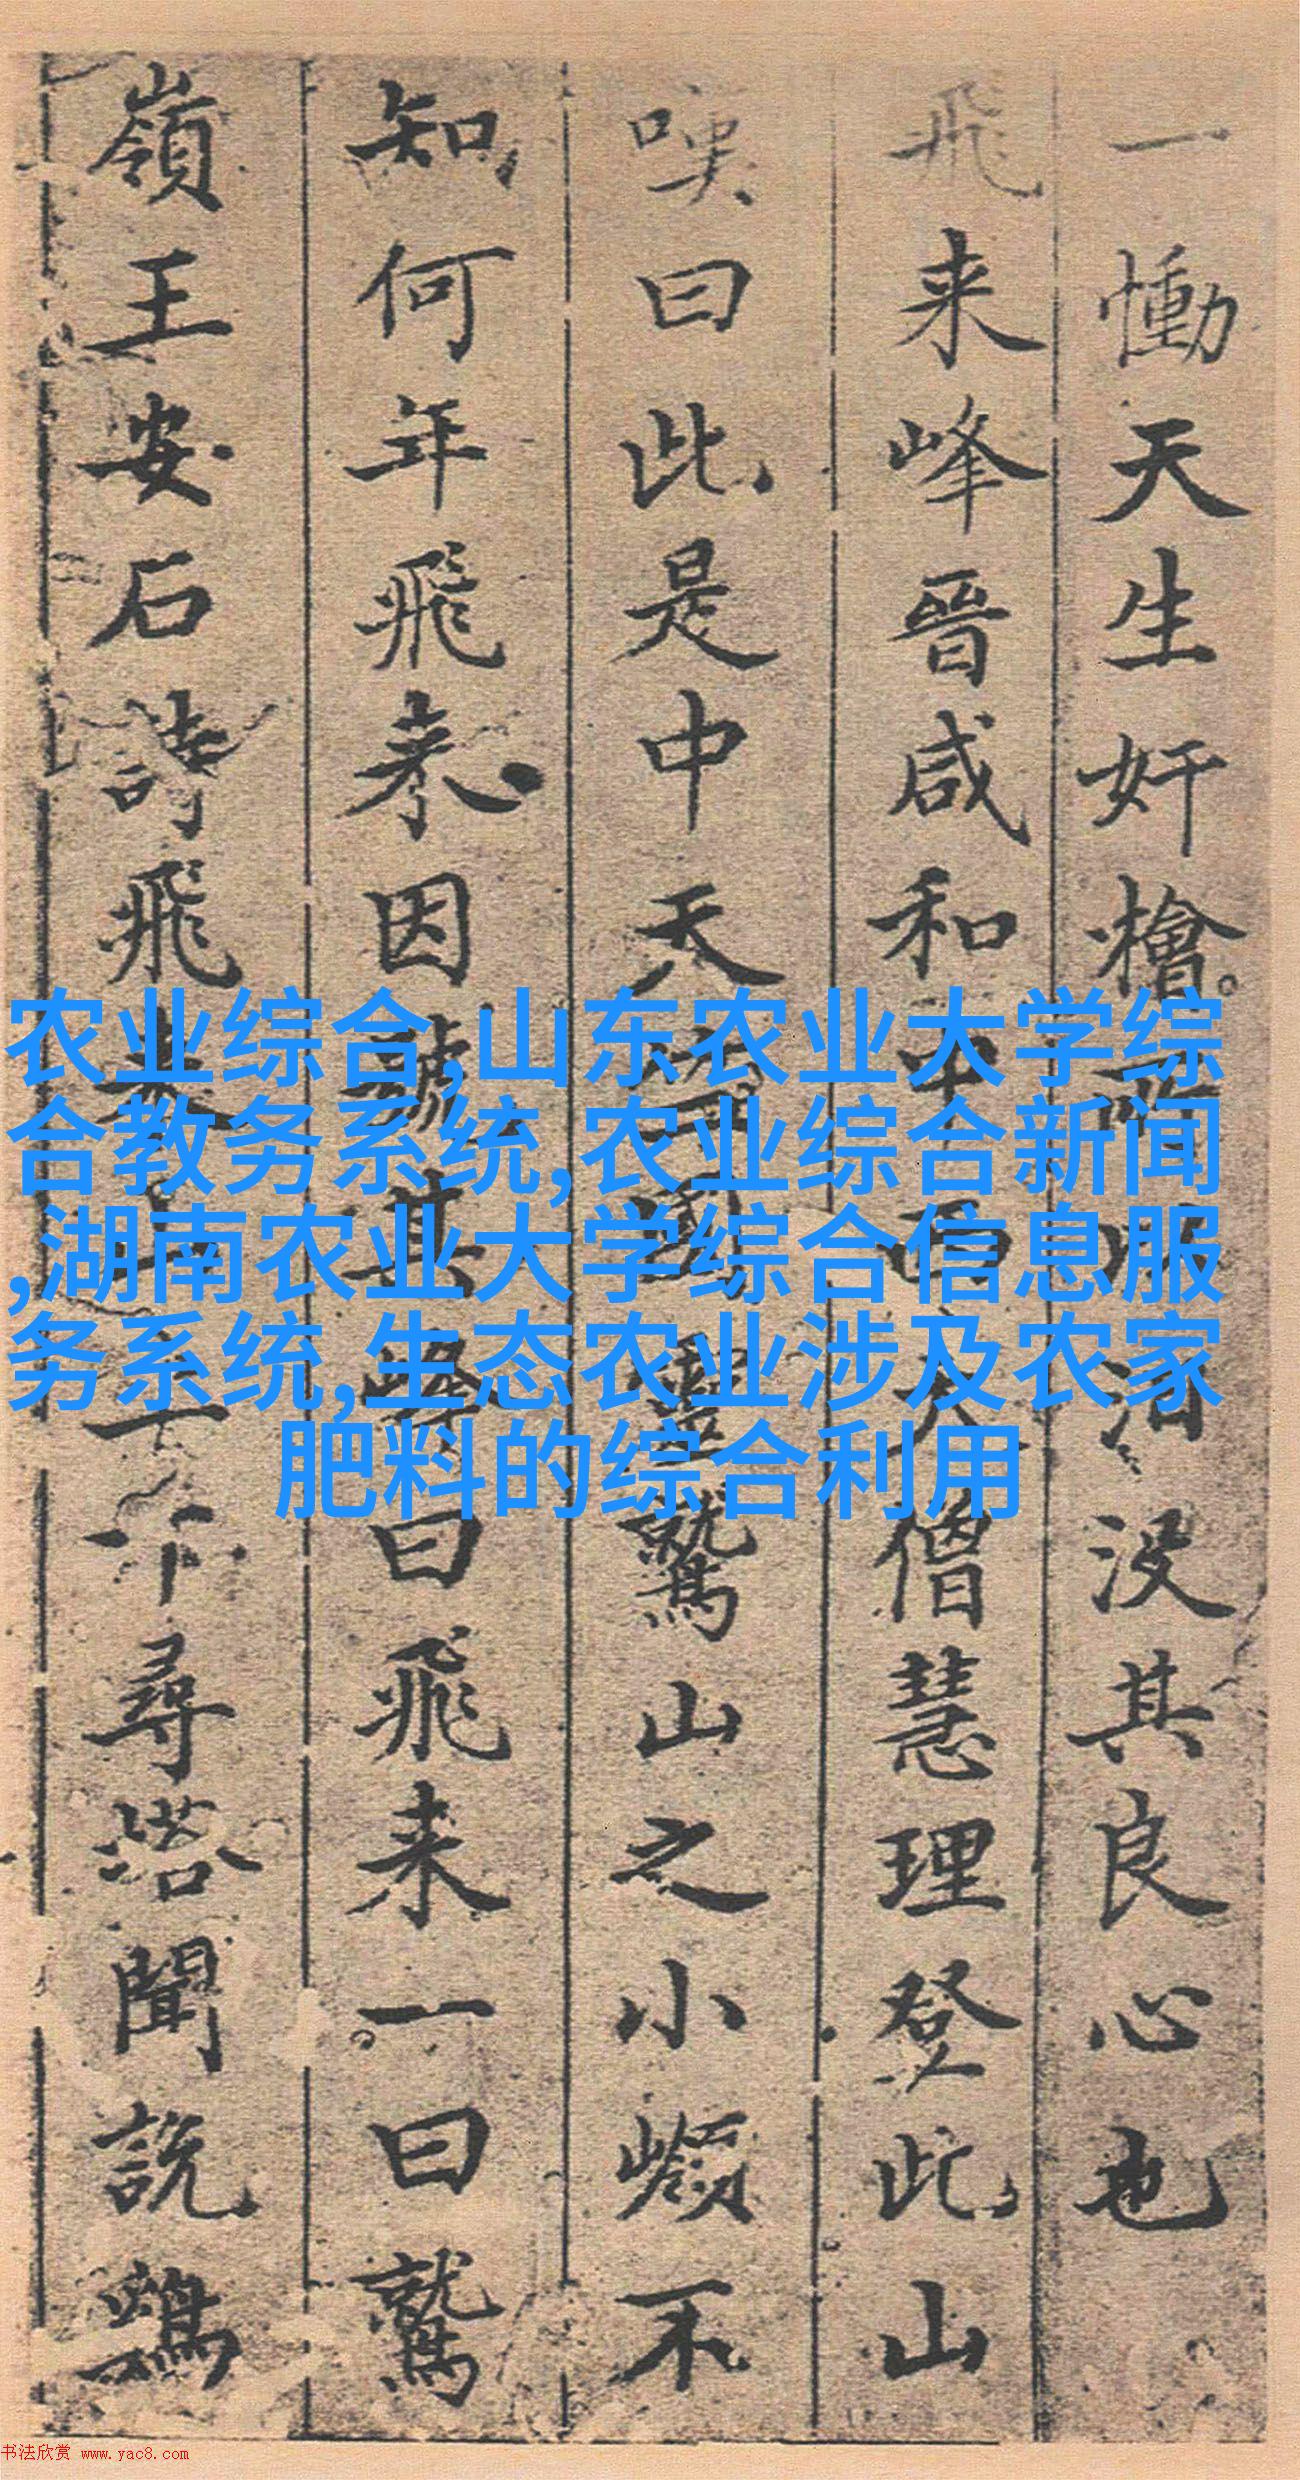 一慟天生奸檜所以汩没其良心也
飛来峰晉咸和中西天僧慧理登此山
嘆曰此是中天竺國靈鷲山之小嶺不
知何年飛来因號其峰曰飛来一曰鷲
嶺王安石詩飛来山上千尋塔聞説鷄
农业综合,山东农业大学综
合教务系统,农业综合新闻
,湖南农业大学综合信息服
务系统,生态农业涉及农家
肥料的综合利用
书法欣赏 www.yac8.com